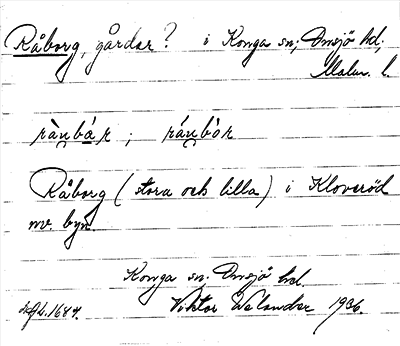 Råborg, gårdar? i Konga sn; Onsjö hd;
Malm. l.
ràu̯bár ; ráu̯bòr
Råborg (stora och lilla) i Kloveröd
nv. byn
Konga sn. Onsjö hd.
Viktor Welander 1936.